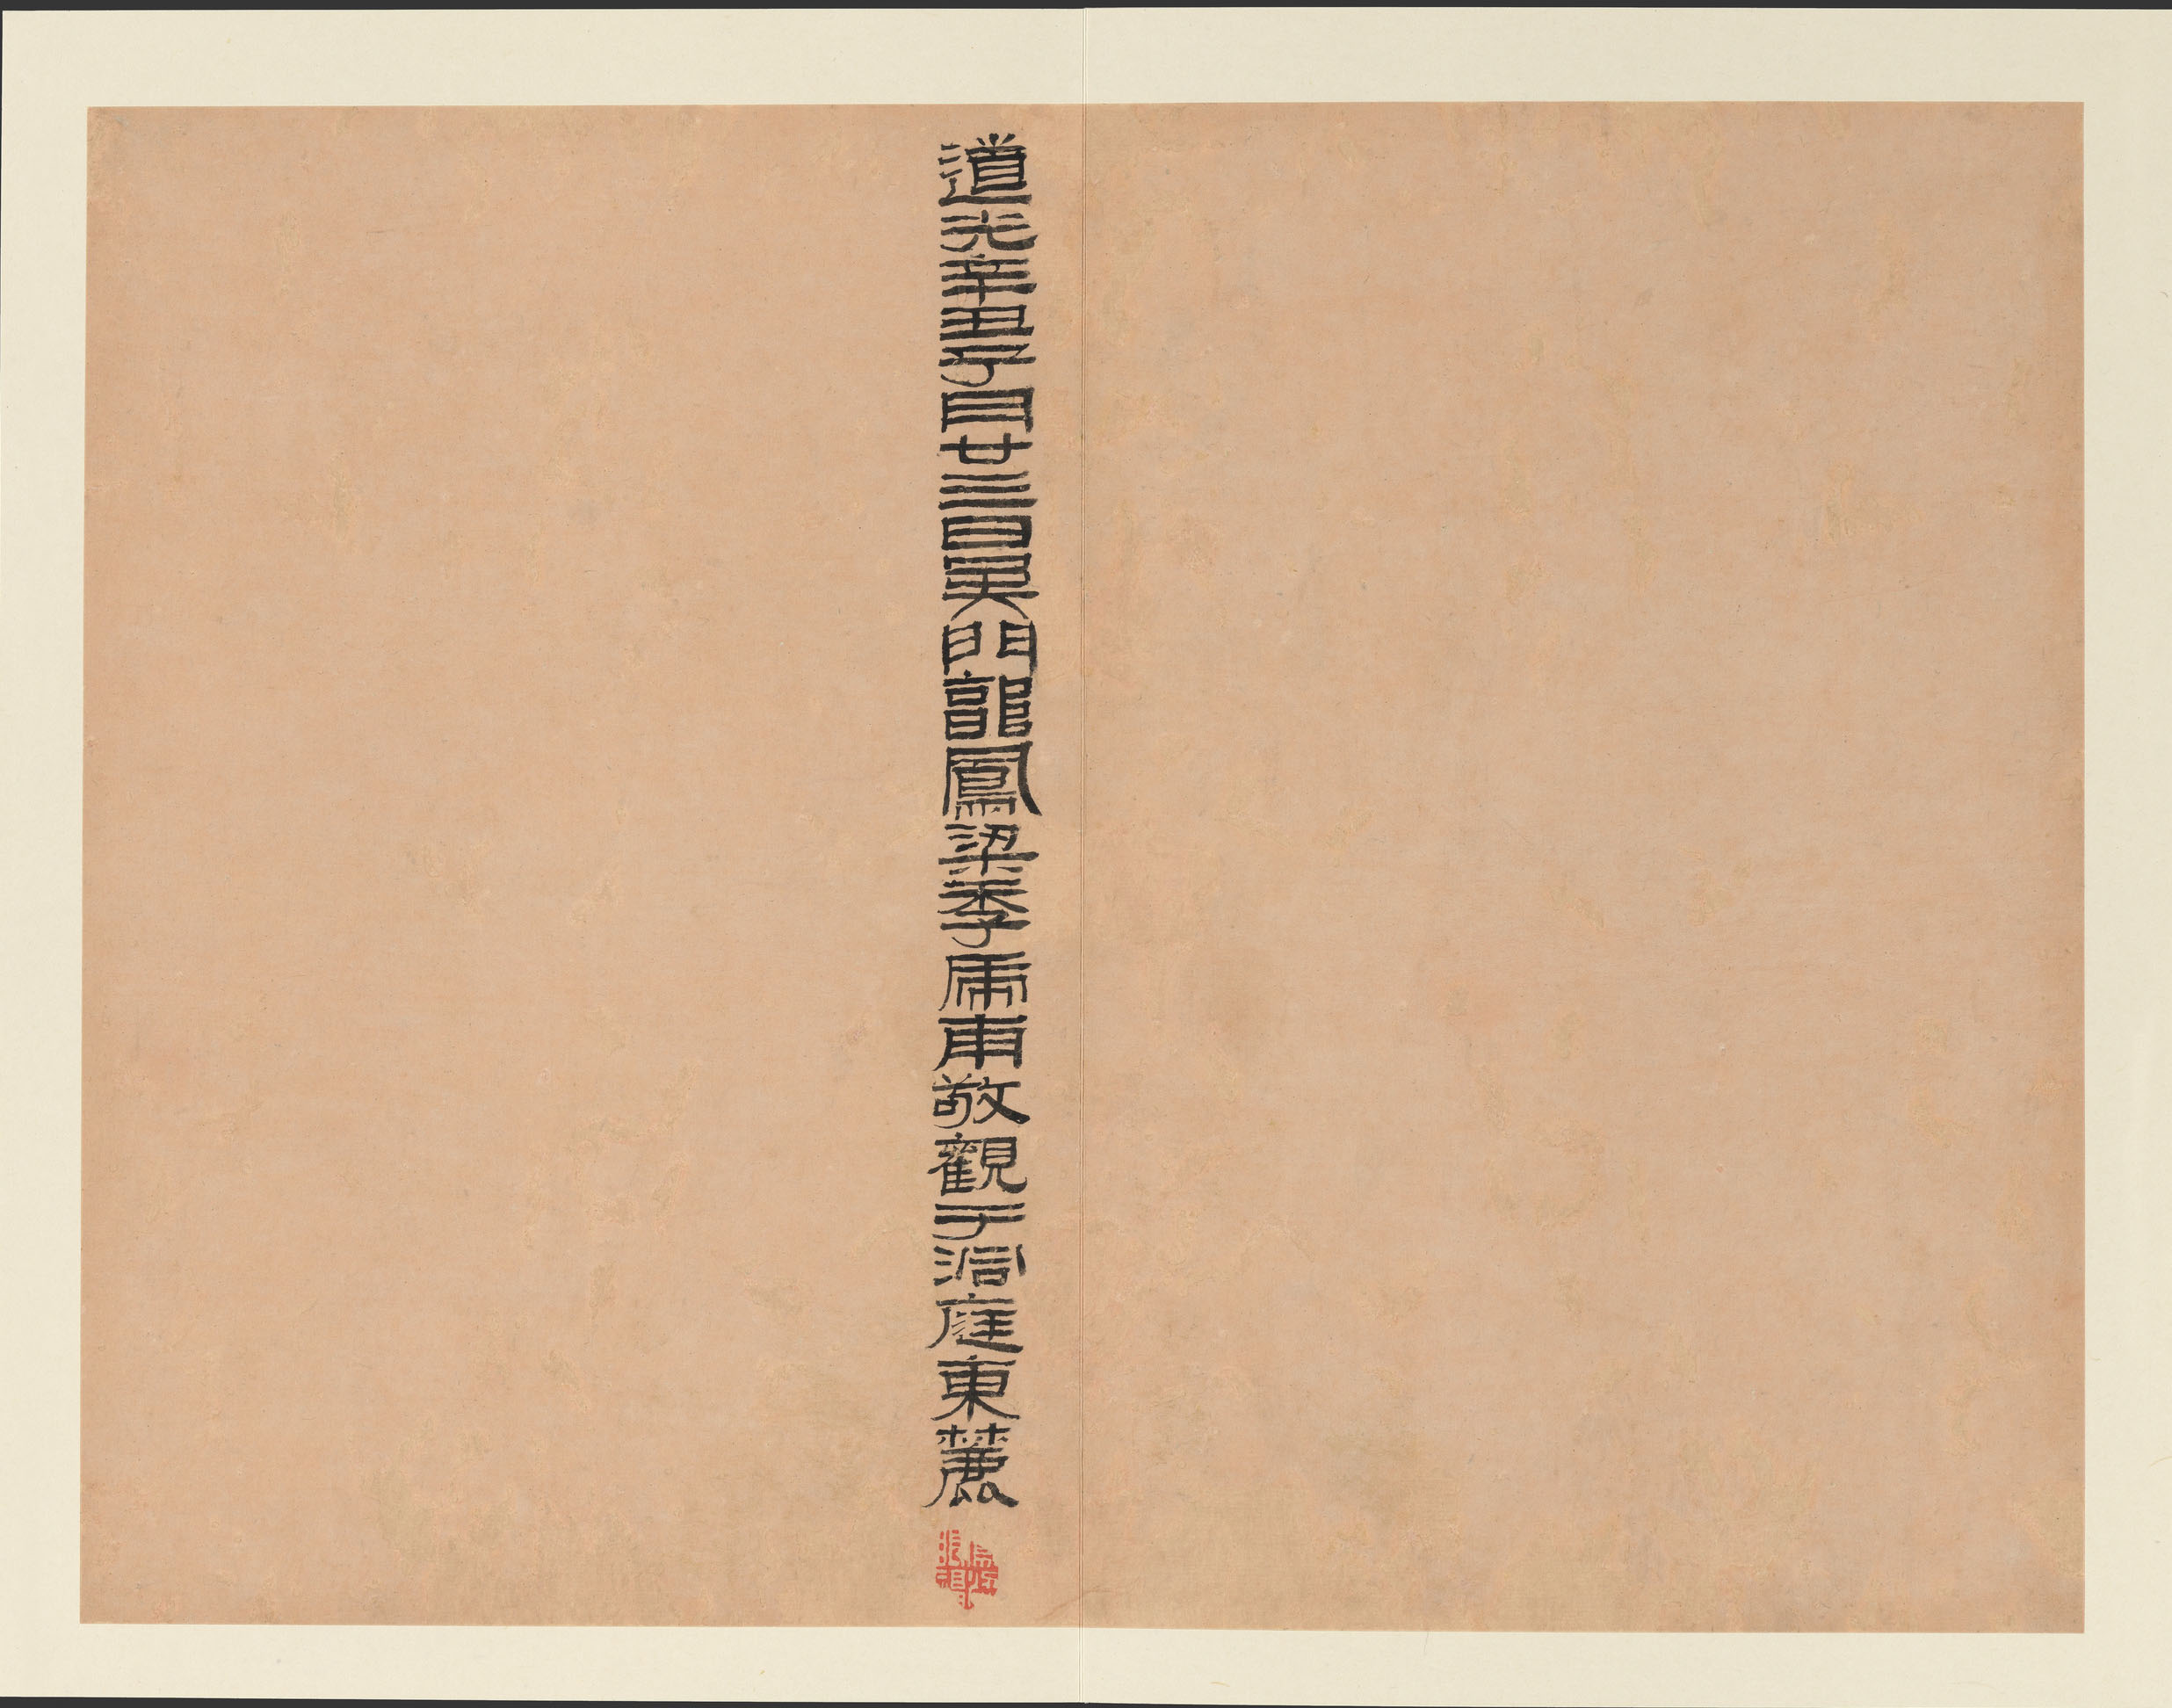 道光辛丑子月廿三日吳門龍鳳梁季虎甫敬觀于洞庭東麓